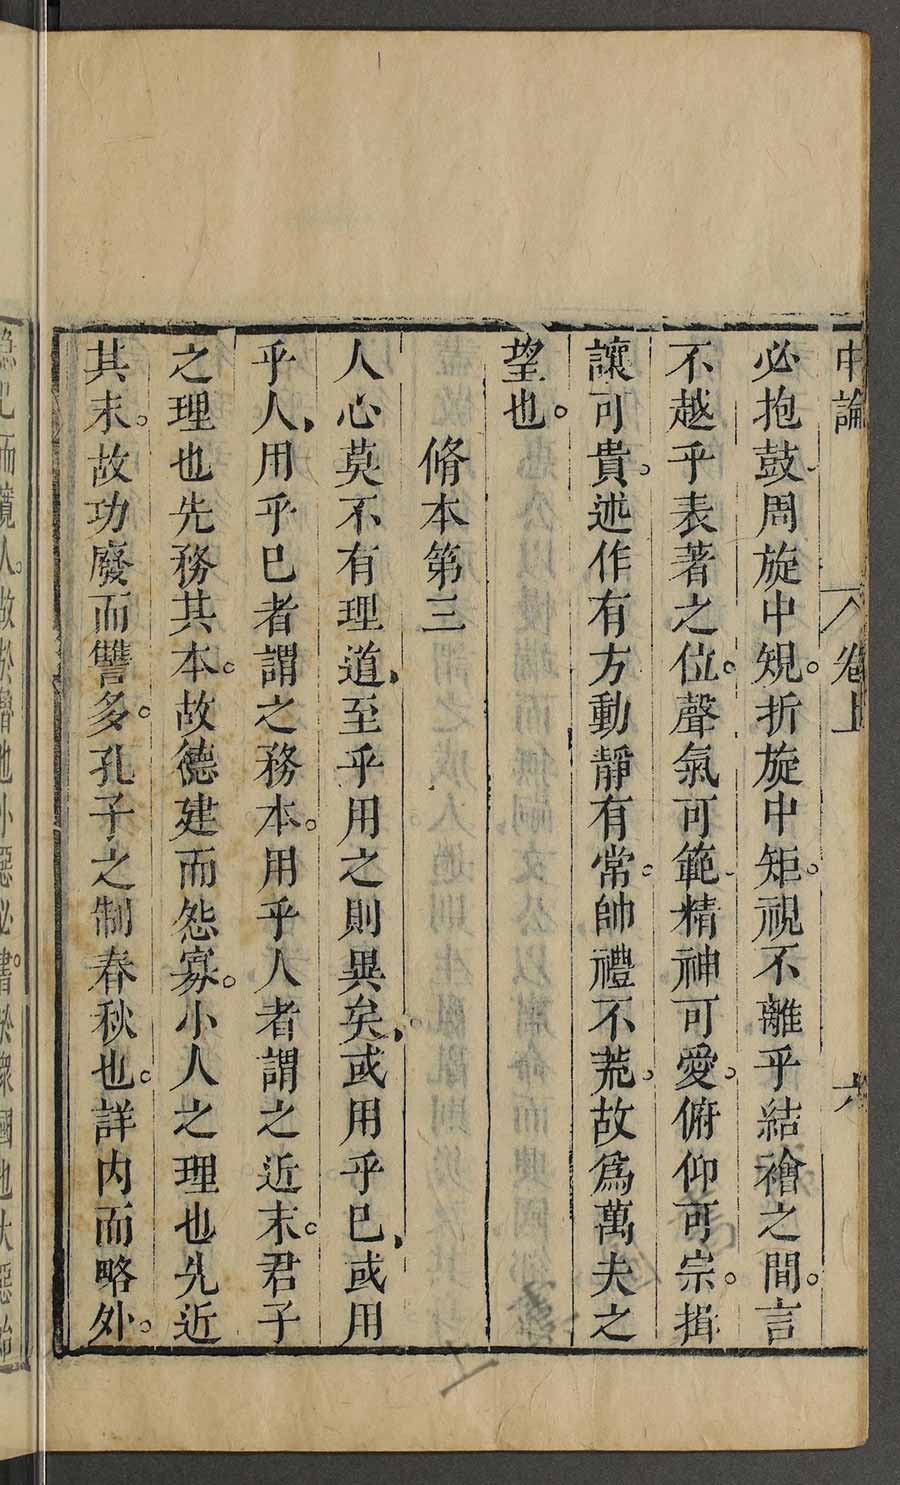 中論
卷上
六
必抱鼓周旋中䂓。折旋中矩。視不離乎結襘之間。言
不越乎表著之位。聲氣可範。精神可愛。俯仰可宗。揖
讓可貴。述作有方。動靜有常。帥禮不荒。故爲萬夫之
望也。
脩本第三
人心莫不有理道、至乎用之則異矣、或用乎已、或用
乎人、用乎已者謂之務本。用乎人者謂之近末。君子
之理也先務其本。故德建而怨寡。小人之理也先近
其末。故功廢而讐多。孔子之制春秋也。詳内而略外。
急已而
人。故於魯也小惡必書。於衆國也大惡始